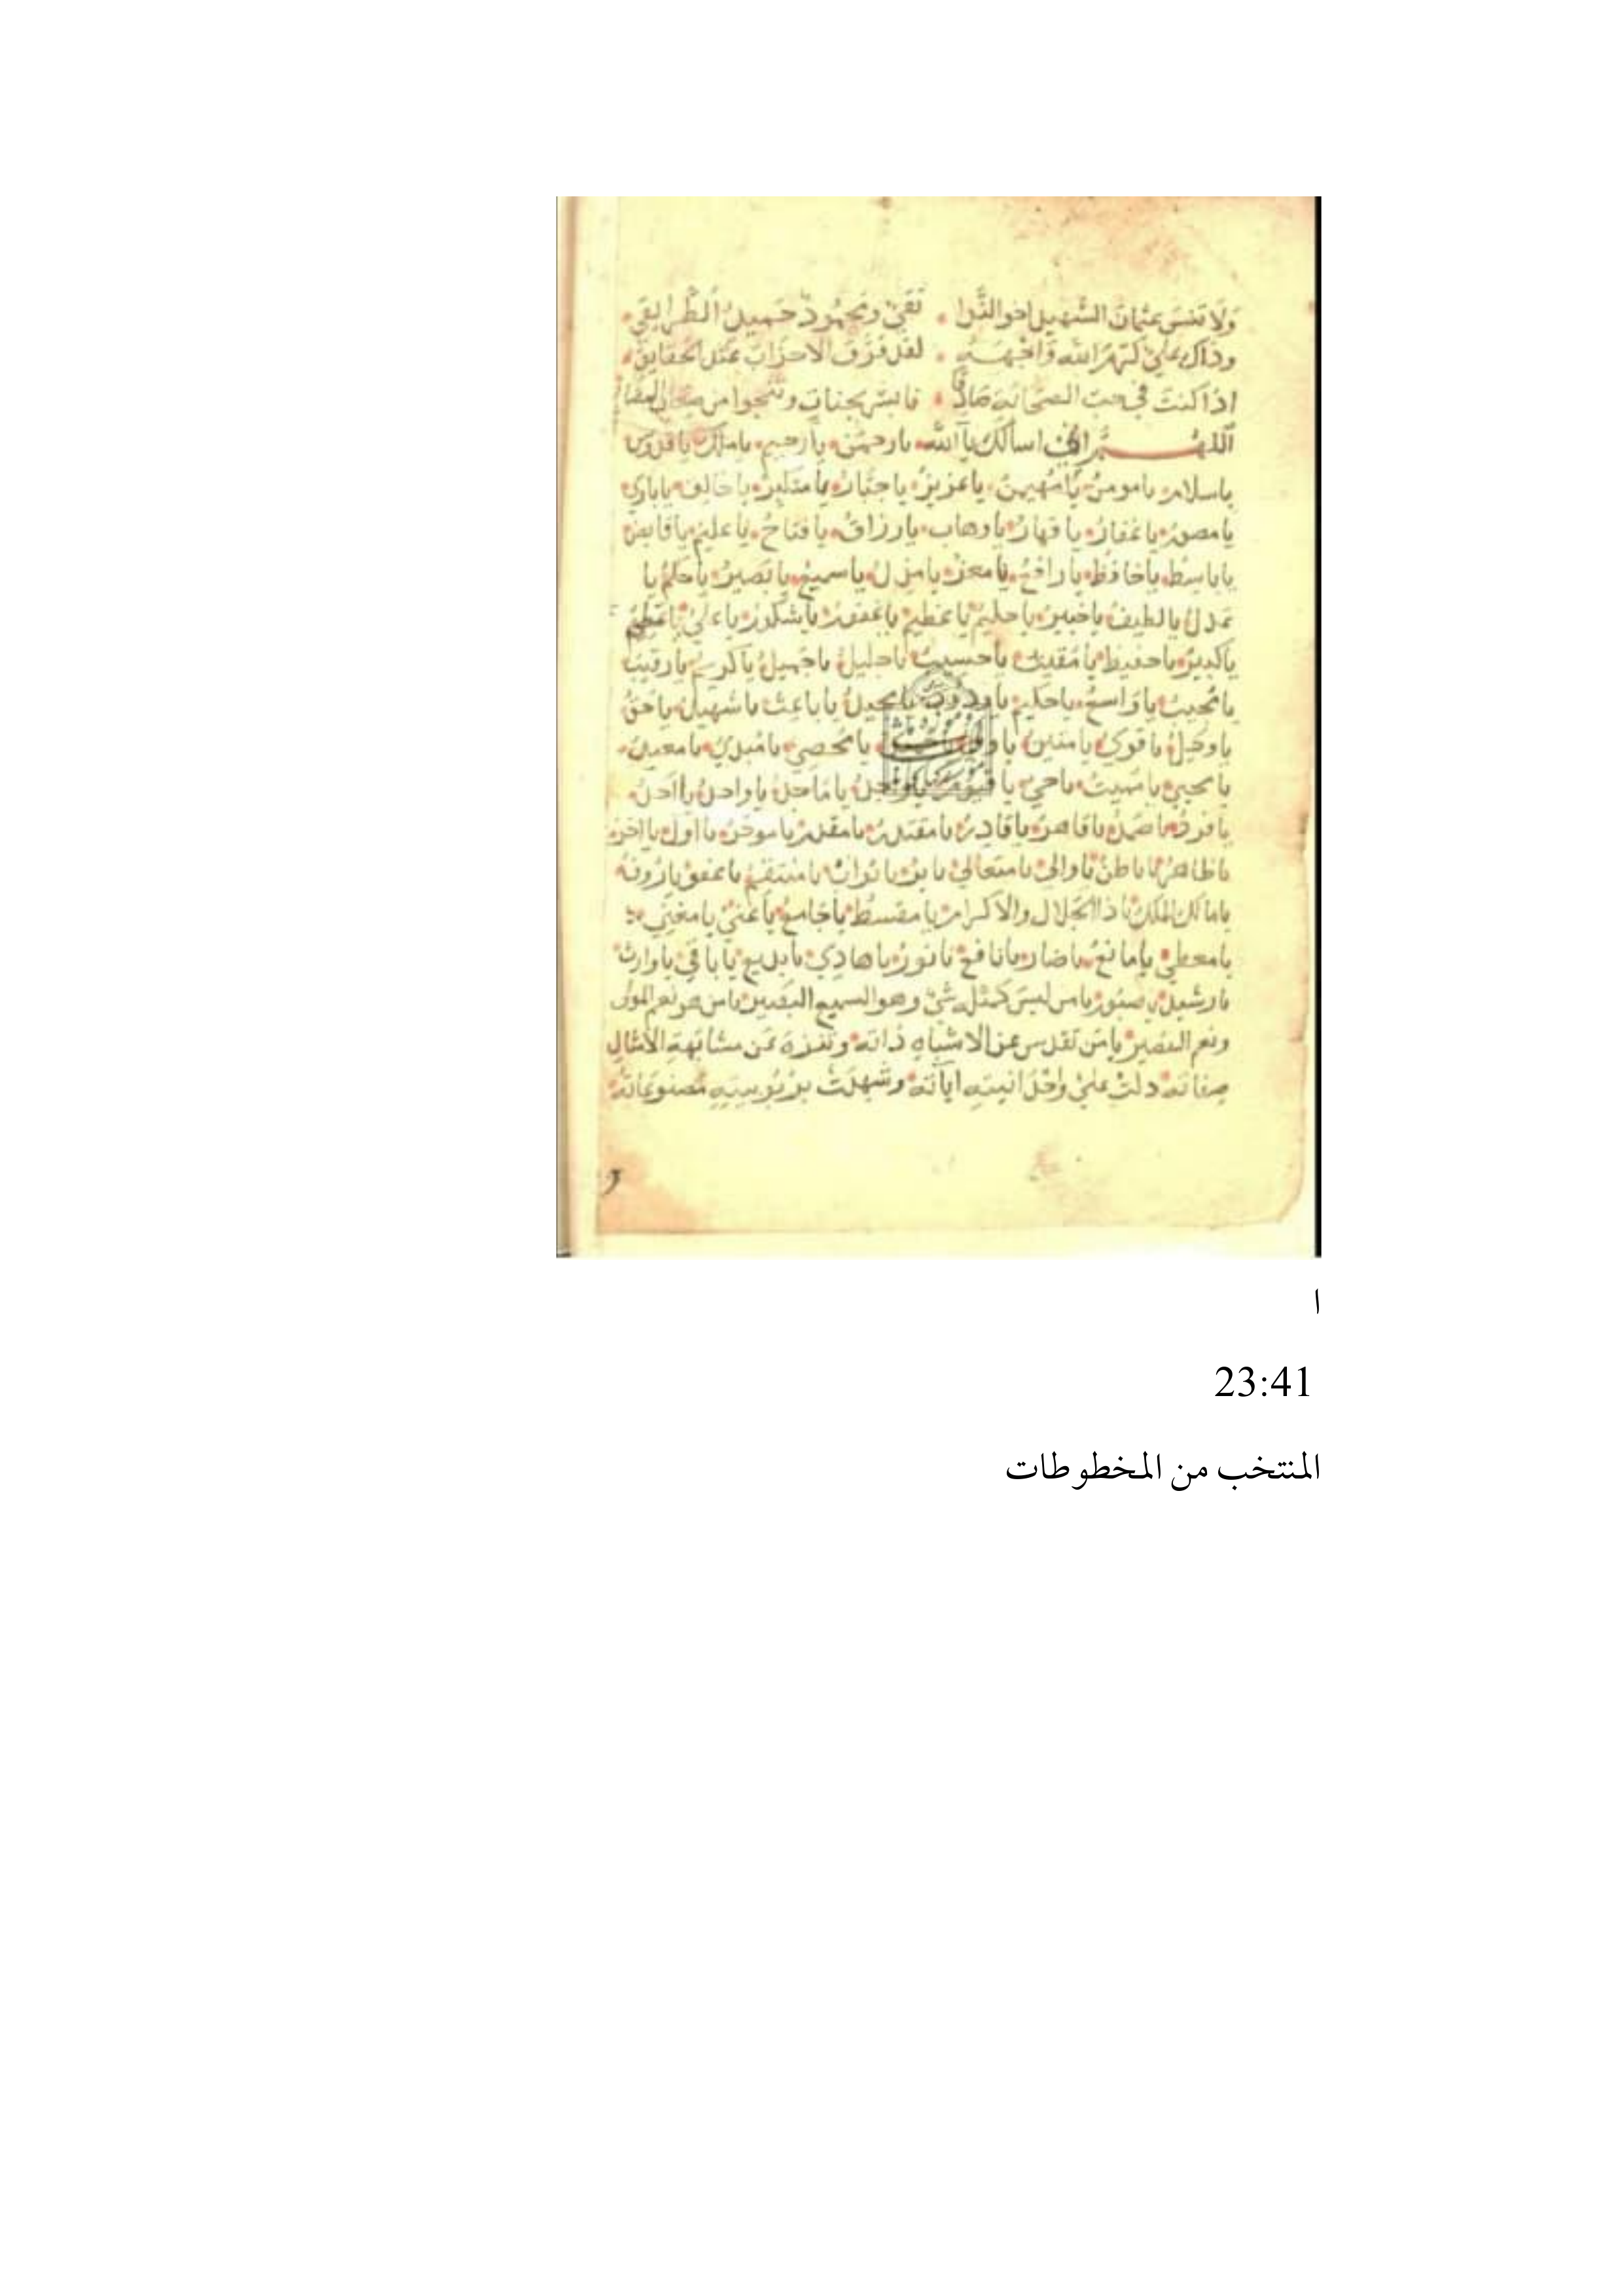 ولا تنس عثمان الشهيد اخو الندا تقي ومحمود حميد الطرايق
وذاك علي كرم الله وجهه لقد فرق الاحزاب عند الحقايق
اذا كنت في حب الصحابة صادقا فابشر بجنات وتنجوا من
اللهم اني اسالك يا الله يا رحمن يا رحيم يا ملك يا قدوس
يا سلام يا مومن يا مهيمن يا عزيز يا جبار يا متكبر يا خالق يا باري
يا مصور يا غفار يا قهار يا وهاب يا رزاق يا فتاح يا عليم يا قابض
يا باسط يا خافظ يا رافع يا معز يا مزل يا سميع يا بصير يا حكم يا
عدل يا لطيف يا خبير يا حليم يا عظيم يا غفور يا شكور يا علي يا عظيم
يا كبير يا حفيظ يا مقيت يا حسيب يا جليل يا جميل يا كريم يا رقيب
يا مجيب يا واسع يا حكيم يا ودود يا مجيد يا باعث يا شهيد يا حق
يا وكيل يا قوي يا متين يا ولي يا محصي يا مبدي يا معيد
يا محيي يا مميت يا حي يا قيوم يا واجد يا ماجد يا واحد يا احد
يا فرد يا صمد يا قاهر يا قادر يا مقتدر يا مقدم يا موخر يا اول يا اخر
يا ظاهر يا باطن يا والي يا متعالي يا بر يا تواب يا منتقم يا عفو يا روف
يا مالك الملك يا ذا الجلال والاكرام يا مقسط يا جامع يا غني يا مغني
يا معطي يا مانع يا ضار يا نافع يا نور يا هادي يا بديع يا باقي يا وارث
يا رشيد يا صبور يا من ليس كمثله شي وهو السميع البصير يا من هو نعم المولى
ونعم النصير يا من تقدس عن الاشباه ذاته وتنزه عن مشابهة الامثال
صفاته دلت علي وحدانيته اياته وشهدت بربوبيته مصنوعاته
و
ا
23:41
المنتخب من المخطوطات